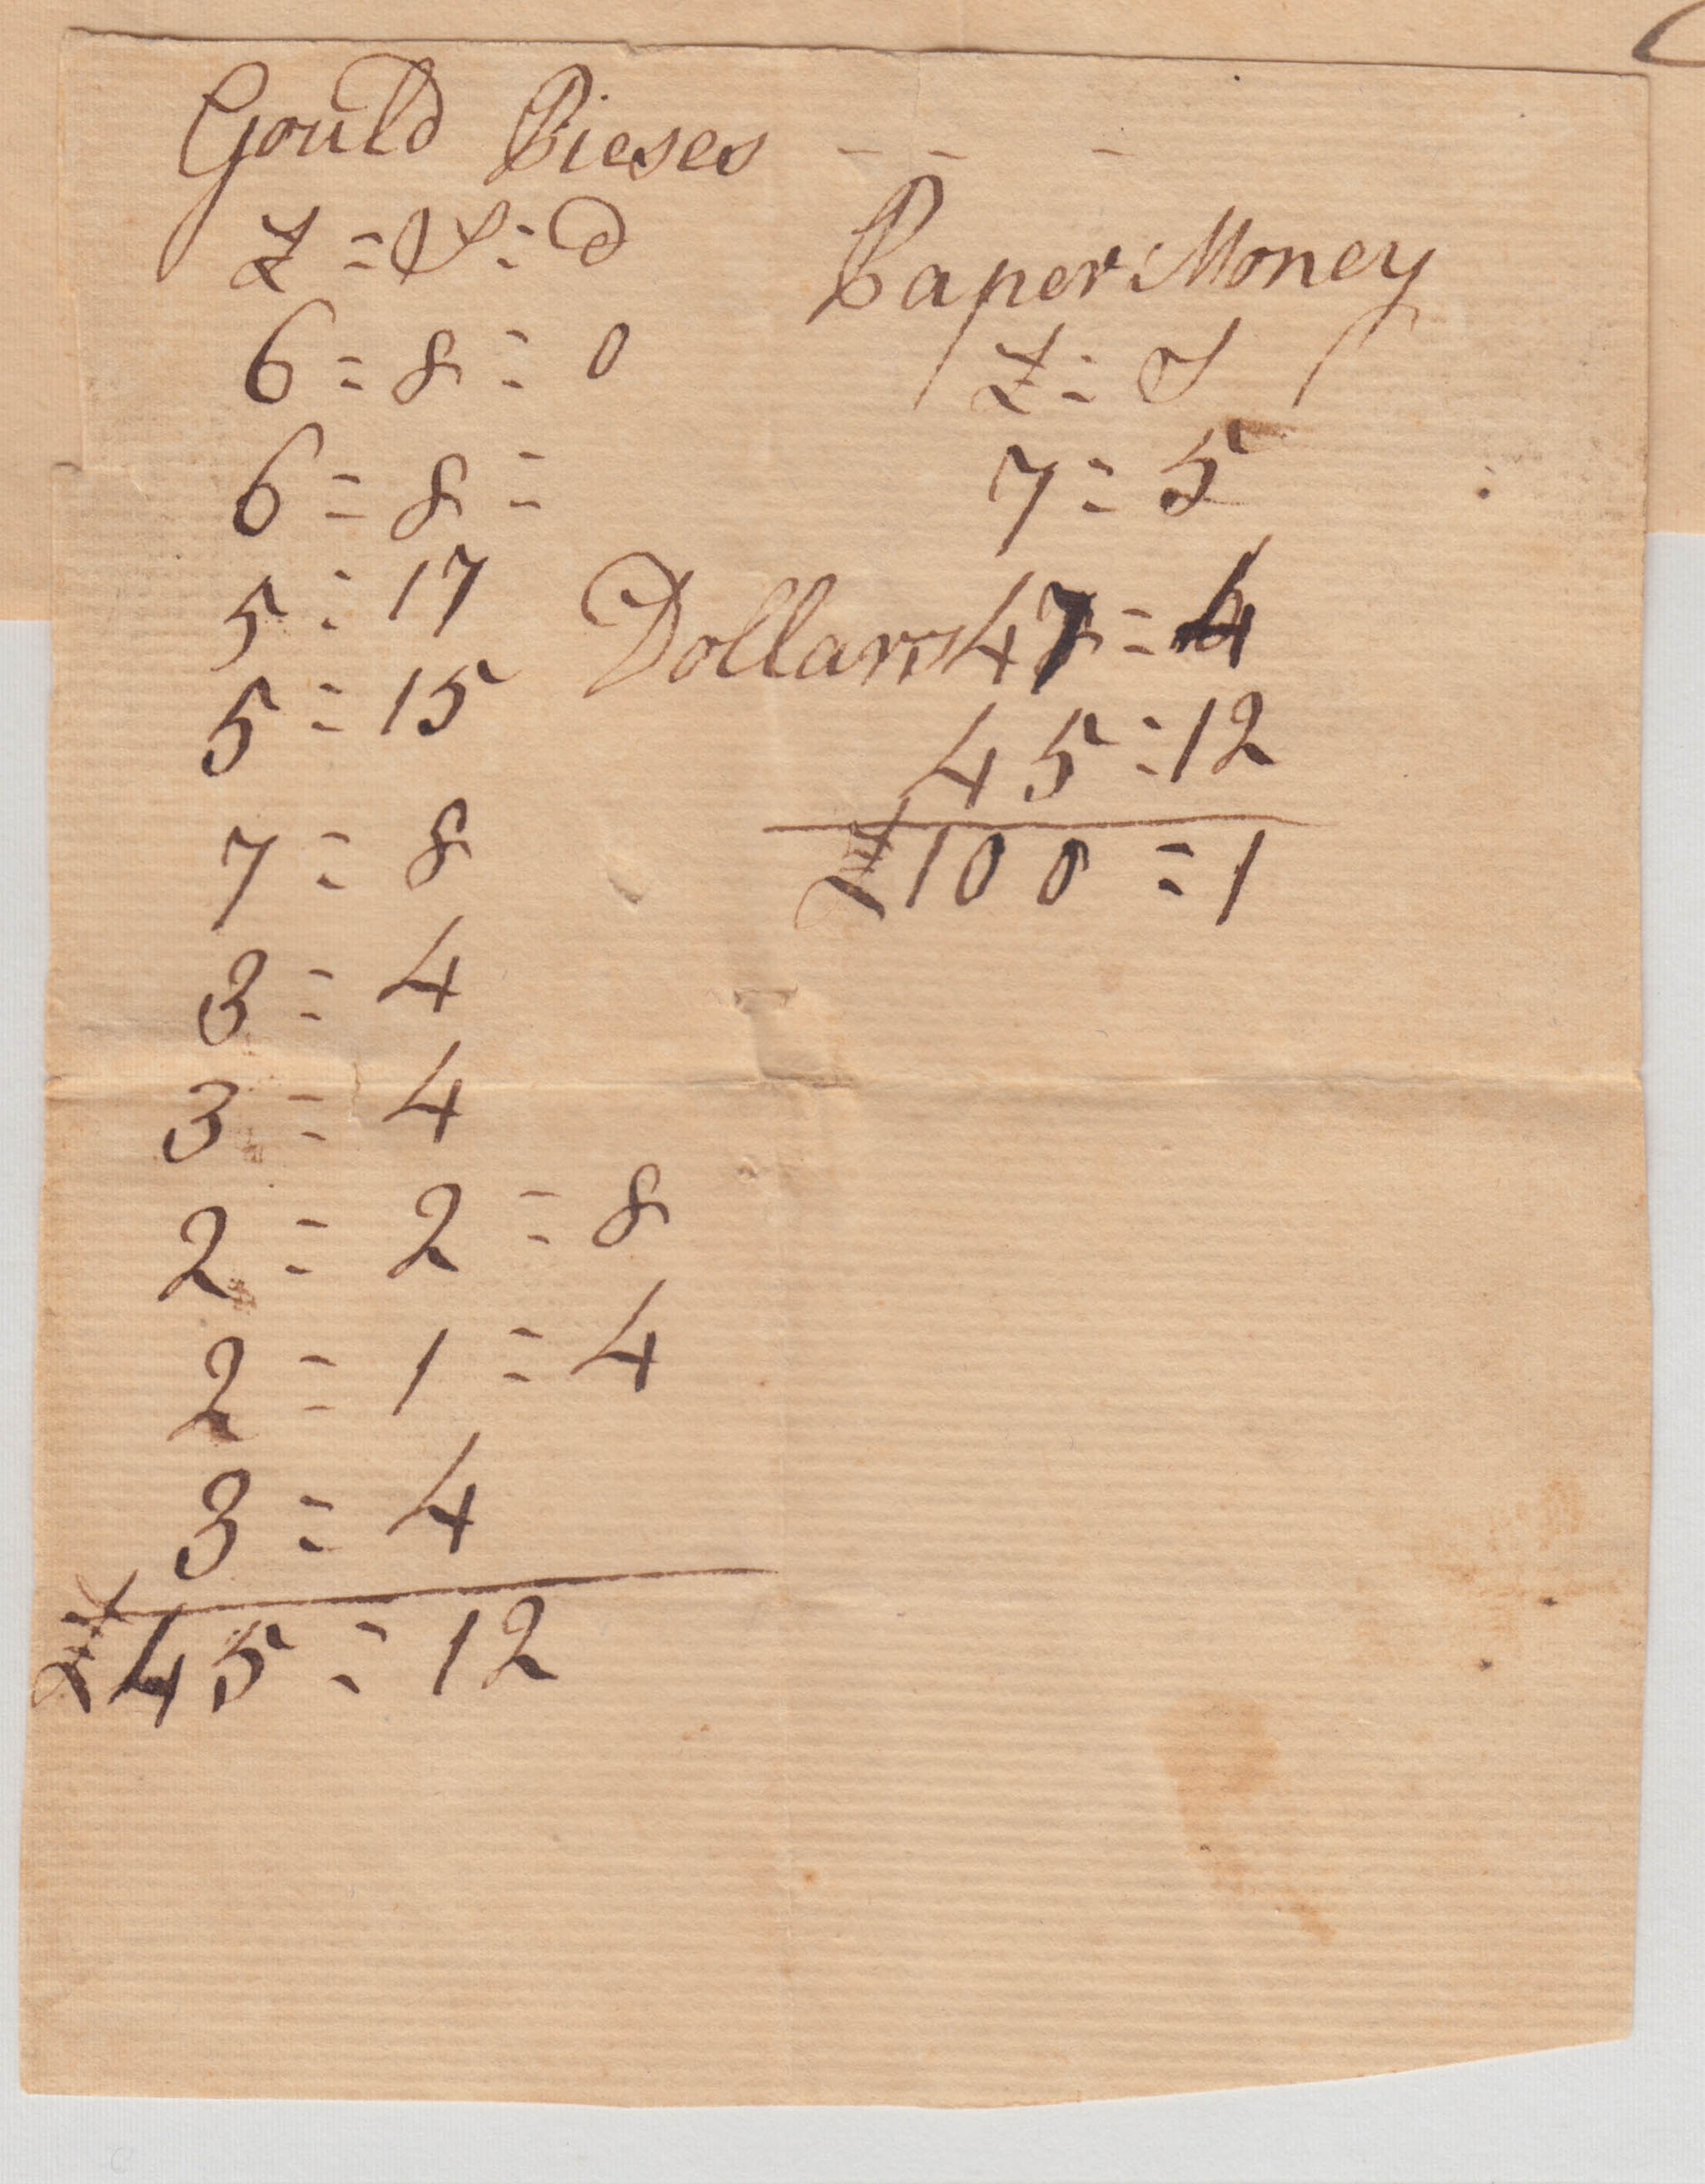 Gould Pieses - - -
£ = S = D
6 = 8 = 0
6 = 8 =
5 = 17
5 = 15
7 = 8
3 = 4
3 = 4
2 = 2 = 8
2 = 1 = 4
3 = 4
£45 = 12
Paper Money
£ = S
7 = 5
Dollars 47 = 4
45 = 12
£100 = 1